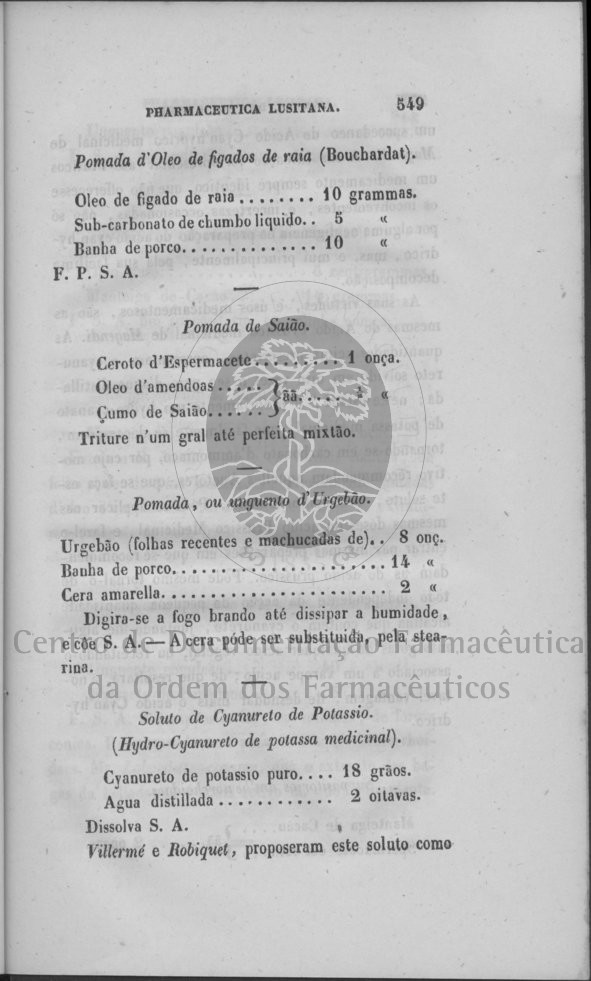 PHARMACEUTICA LUSITANA. 549
Pomada d'Oleo de figados de raia (Bouchardat).
Oleo de figado de raia ........ 10 grammas.
Sub-carbonato de chumbo liquido.. 5 «
Banha de porco............... 10 «
F. P. S. A.
Pomada de Saião.
Ceroto d'Espermacete......... 1 onça.
Oleo d'amendoas .....
Çumo de Saião......
} ãã...... «
Triture n'um gral até perfeita mixtão.
Pomada, ou unguento d'Urgebão.
Urgebão (folhas recentes e machucadas de).. 8 onç.
Banha de porco........................ 14 «
Cera amarella......................... 2 «
Digira-se a fogo brando até dissipar a humidade,
e côe S. A.— A cera póde ser substituida, pela stea-
rina.
Centro de Documentação Farmacêutica
da Ordem dos Farmacêuticos
Soluto de Cyanureto de Potassio.
(Hydro-Cyanureto de potassa medicinal).
Cyanureto de potassio puro.... 18 grãos.
Agua distillada ............ 2 oitavas.
Dissolva S. A.
Villermé e Robiquet, proposeram este soluto como